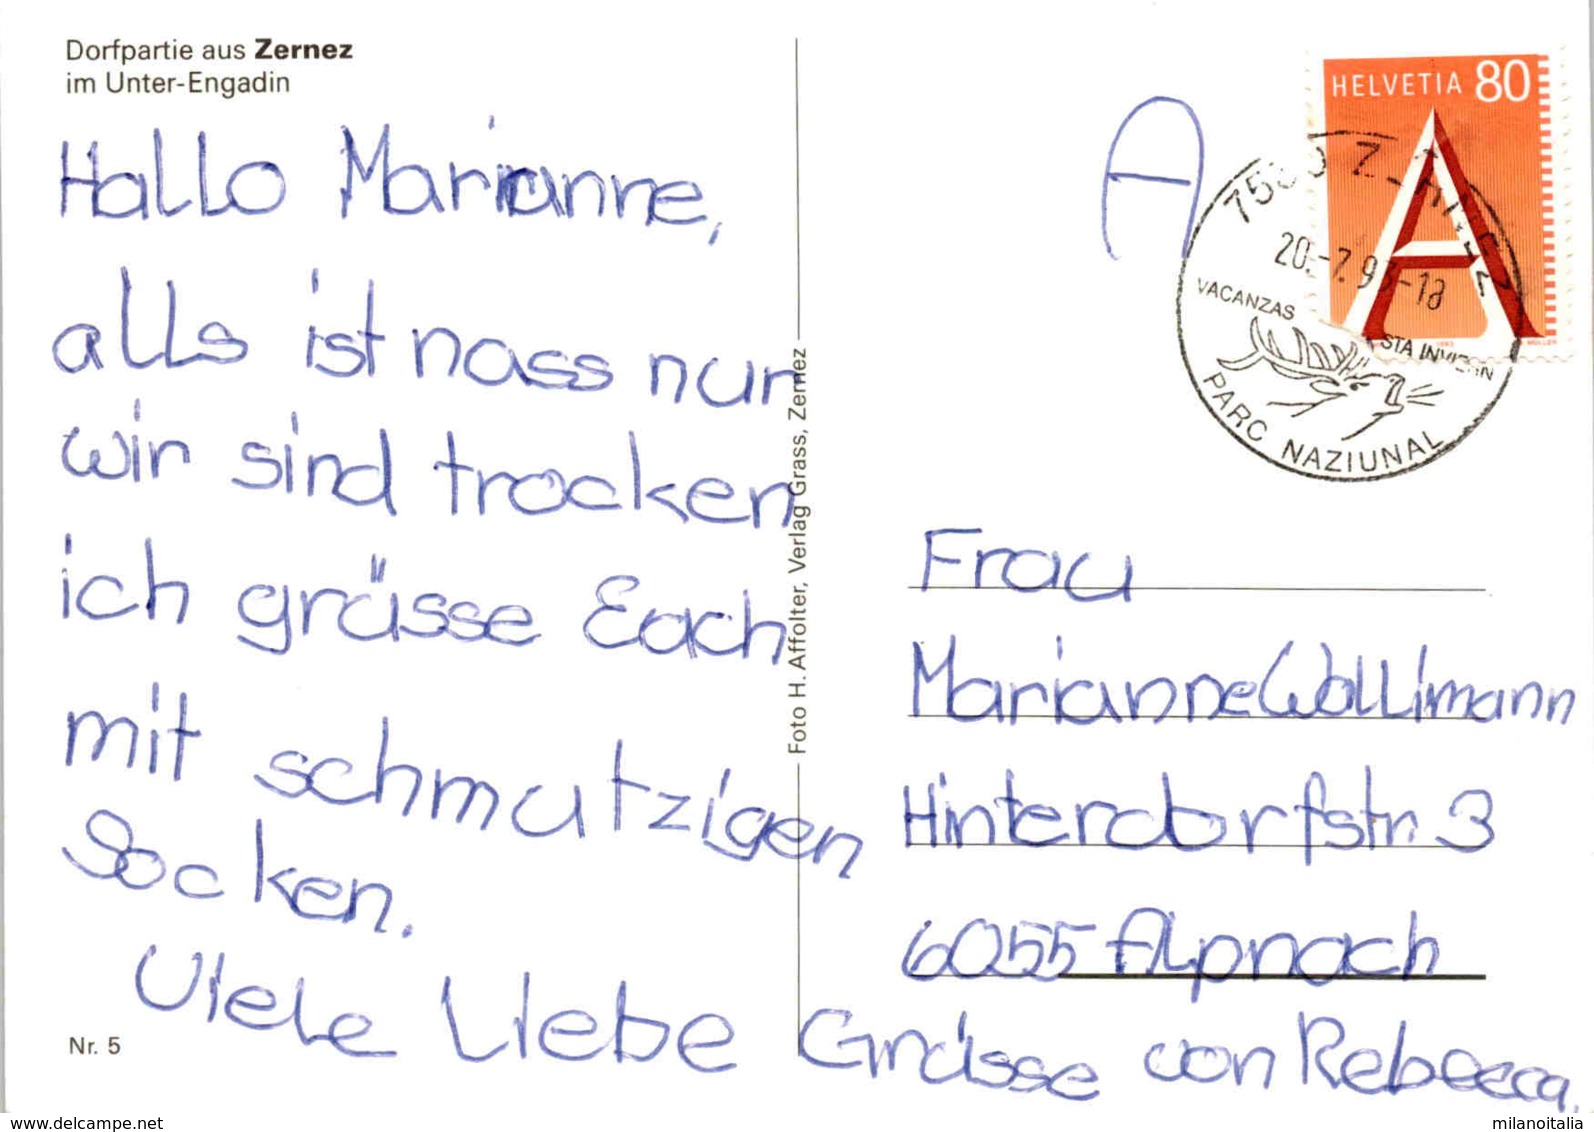 Dorfpartie aus Zernez
im Unter-Engadin
Hallo Marianne,
alls ist nass nur
wir sind trocken
ich grüsse Each
mit schmutzigen
Socken.
Viele Liebe Grüsse von Rebecca.
Nr. 5
Foto H. Affolter, Verlag Grass, Zernez
A
HELVETIA 80
A
1993 MÜLLER
20.-7.93-18
VACANZAS STA INVIERN
PARC NAZIUNAL
Frau
Marianne Wallimann
Hinterdorfstr. 3
6055 Alpnach
www.delcampe.net
milanoitalia